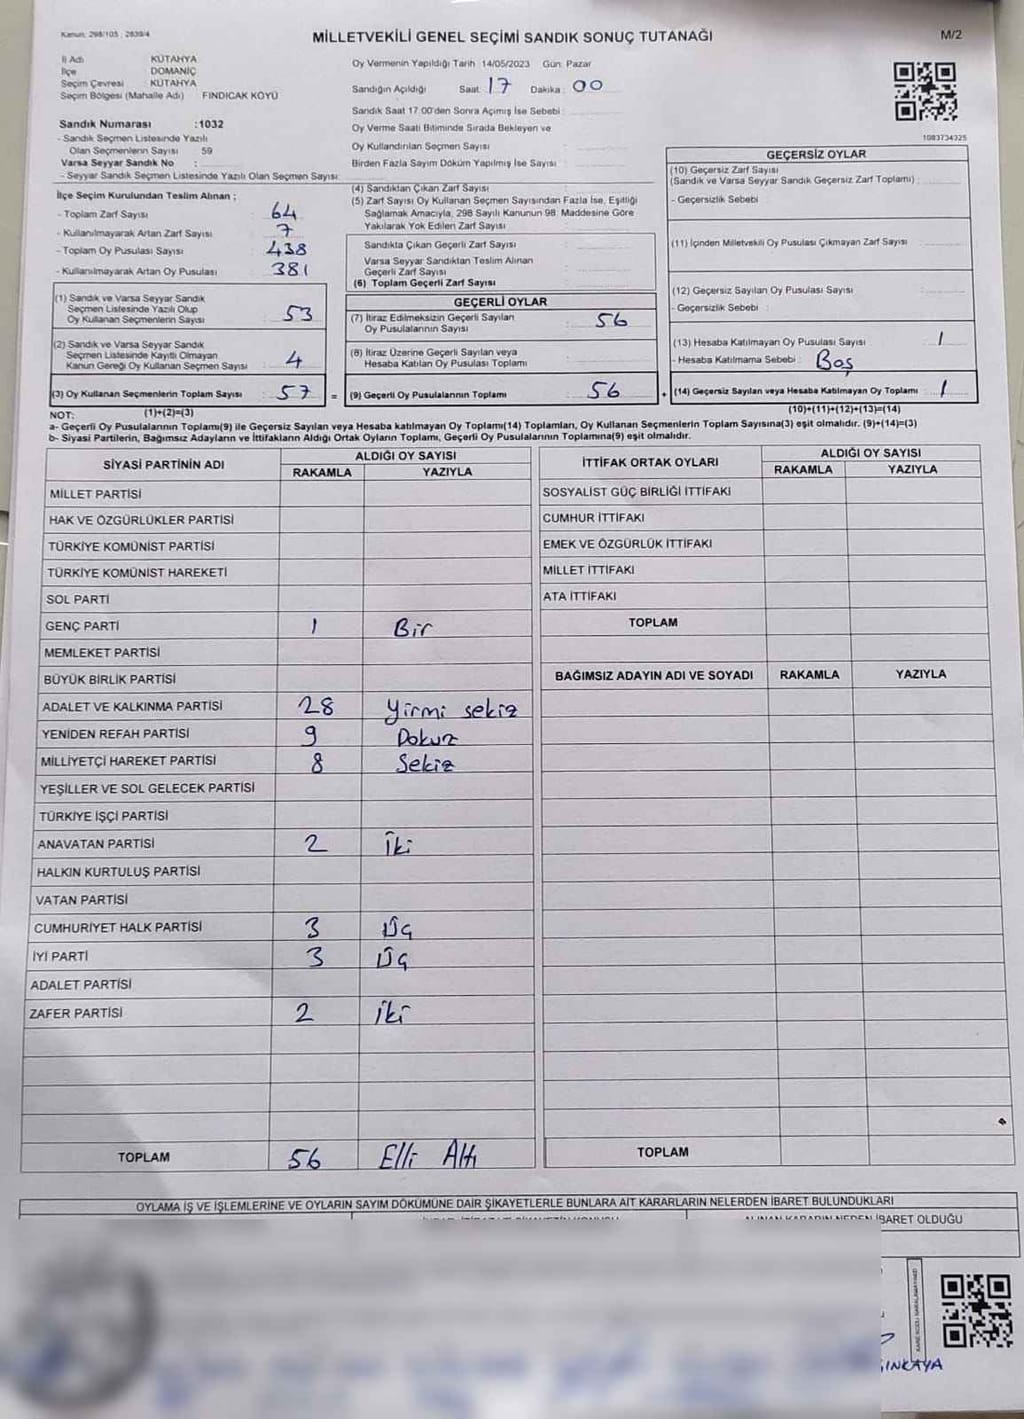 Kanun: 298/105 ; 2839/4
MİLLETVEKİLİ GENEL SEÇİMİ SANDIK SONUÇ TUTANAĞI
M/2
İl Adı KÜTAHYA
İlçe DOMANİÇ
Seçim Çevresi : KÜTAHYA
Seçim Bölgesi (Mahalle Adı) FINDICAK KÖYÜ
Sandık Numarası :1032
- Sandık Seçmen Listesinde Yazılı
Olan Seçmenlerin Sayısı 59
Varsa Seyyar Sandık No :
- Seyyar Sandık Seçmen Listesinde Yazılı Olan Seçmen Sayısı:
İlçe Seçim Kurulundan Teslim Alınan ;
- Toplam Zarf Sayısı 64
- Kullanılmayarak Artan Zarf Sayısı 7
- Toplam Oy Pusulası Sayısı 438
- Kullanılmayarak Artan Oy Pusulası 381
(1) Sandık ve Varsa Seyyar Sandık
Seçmen Listesinde Yazılı Olup
Oy Kullanan Seçmenlerin Sayısı 53
(2) Sandık ve Varsa Seyyar Sandık
Seçmen Listesinde Kayıtlı Olmayan
Kanun Gereği Oy Kullanan Seçmen Sayısı 4
(3) Oy Kullanan Seçmenlerin Toplam Sayısı 57 =
Oy Vermenin Yapıldığı Tarih 14/05/2023 Gün: Pazar
Sandığın Açıldığı Saat: 17 Dakika: 00
Sandık Saat 17:00'den Sonra Açılmış İse Sebebi :
Oy Verme Saati Bitiminde Sırada Bekleyen ve
Oy Kullandırılan Seçmen Sayısı
Birden Fazla Sayım Döküm Yapılmış İse Sayısı
(4) Sandıktan Çıkan Zarf Sayısı
(5) Zarf Sayısı Oy Kullanan Seçmen Sayısından Fazla İse, Eşitliği
Sağlamak Amacıyla, 298 Sayılı Kanunun 98. Maddesine Göre
Yakılarak Yok Edilen Zarf Sayısı
Sandıkta Çıkan Geçerli Zarf Sayısı
Varsa Seyyar Sandıktan Teslim Alınan
Geçerli Zarf Sayısı
(6) Toplam Geçerli Zarf Sayısı
GEÇERLİ OYLAR
(7) İtiraz Edilmeksizin Geçerli Sayılan
Oy Pusulalarının Sayısı 56
(8) İtiraz Üzerine Geçerli Sayılan veya
Hesaba Katılan Oy Pusulası Toplamı
(9) Geçerli Oy Pusulalarının Toplamı 56 +
1083734325
GEÇERSİZ OYLAR
(10) Geçersiz Zarf Sayısı
(Sandık ve Varsa Seyyar Sandık Geçersiz Zarf Toplamı) :
- Geçersizlik Sebebi
(11) İçinden Milletvekili Oy Pusulası Çıkmayan Zarf Sayısı
(12) Geçersiz Sayılan Oy Pusulası Sayısı
- Geçersizlik Sebebi :
(13) Hesaba Katılmayan Oy Pusulası Sayısı 1
- Hesaba Katılmama Sebebi : Boş
(14) Geçersiz Sayılan veya Hesaba Katılmayan Oy Toplamı 1
NOT: (1)+(2)=(3) (10)+(11)+(12)+(13)=(14)
a- Geçerli Oy Pusulalarının Toplamı(9) ile Geçersiz Sayılan veya Hesaba katılmayan Oy Toplamı(14) Toplamları, Oy Kullanan Seçmenlerin Toplam Sayısına(3) eşit olmalıdır. (9)+(14)=(3)
b- Siyasi Partilerin, Bağımsız Adayların ve İttifakların Aldığı Ortak Oyların Toplamı, Geçerli Oy Pusulalarının Toplamına(9) eşit olmalıdır.
SİYASİ PARTİNİN ADI ALDIĞI OY SAYISI
RAKAMLA YAZIYLA
MİLLET PARTİSİ
HAK VE ÖZGÜRLÜKLER PARTİSİ
TÜRKİYE KOMÜNİST PARTİSİ
TÜRKİYE KOMÜNİST HAREKETİ
SOL PARTİ
GENÇ PARTİ 1 Bir
MEMLEKET PARTİSİ
BÜYÜK BİRLİK PARTİSİ
ADALET VE KALKINMA PARTİSİ 28 Yirmi sekiz
YENİDEN REFAH PARTİSİ 9 Dokuz
MİLLİYETÇİ HAREKET PARTİSİ 8 Sekiz
YEŞİLLER VE SOL GELECEK PARTİSİ
TÜRKİYE İŞÇİ PARTİSİ
ANAVATAN PARTİSİ 2 İki
HALKIN KURTULUŞ PARTİSİ
VATAN PARTİSİ
CUMHURİYET HALK PARTİSİ 3 Üç
İYİ PARTİ 3 Üç
ADALET PARTİSİ
ZAFER PARTİSİ 2 İki
TOPLAM 56 Elli Altı
İTTİFAK ORTAK OYLARI ALDIĞI OY SAYISI
RAKAMLA YAZIYLA
SOSYALİST GÜÇ BİRLİĞİ İTTİFAKI
CUMHUR İTTİFAKI
EMEK VE ÖZGÜRLÜK İTTİFAKI
MİLLET İTTİFAKI
ATA İTTİFAKI
TOPLAM
BAĞIMSIZ ADAYIN ADI VE SOYADI RAKAMLA YAZIYLA
TOPLAM
OYLAMA İŞ VE İŞLEMLERİNE VE OYLARIN SAYIM DÖKÜMÜNE DAİR ŞİKAYETLERLE BUNLARA AİT KARARLARIN NELERDEN İBARET BULUNDUKLARI
ALINAN KARARIN NEDEN İBARET OLDUĞU